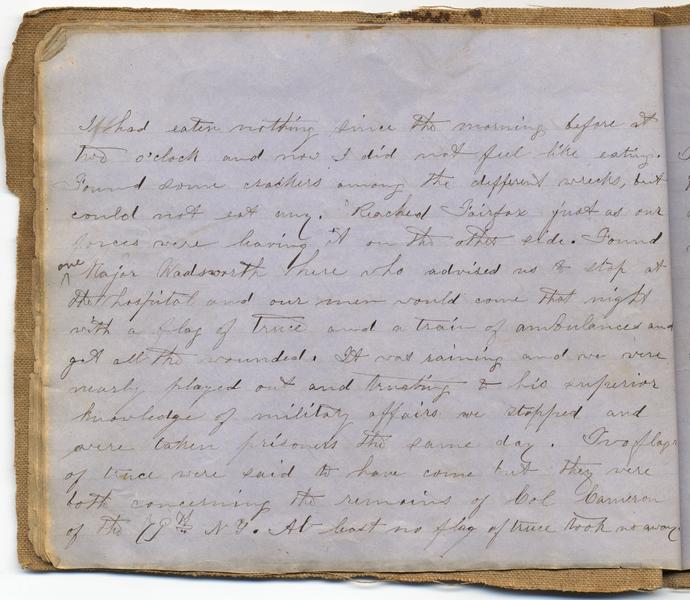 I had eaten nothing since the morning before at
two o'clock and now I did not feel like eating.
Found some crackers among the different wrecks, but
could not eat any. Reached Fairfax just as our
forces were leaving it on the other side. Found
one Major Wadsworth there who advised us to stop at
the hospital and our men would come that night
with a flag of truce and a train of ambulances and
get all the wounded. It was raining and we were
nearly played out and trusting to his superior
knowledge of military affairs we stopped and
were taken prisoners the same day. Two flags
of truce were said to have come but they were
both concerning the remains of Col Cameron
of the 79th N.Y. At least no flag of truce took us away.